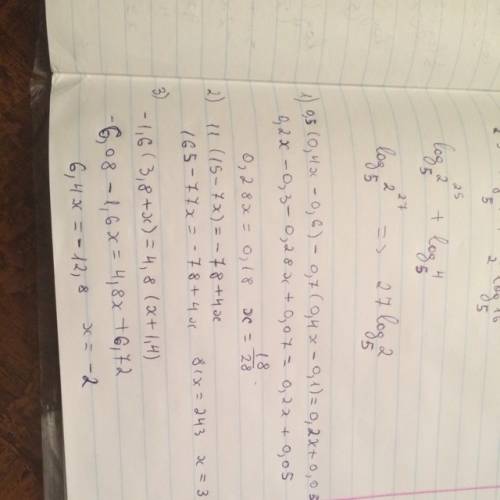 log₅2²⁵ + log₅4
log₅2²⁷ => 27 log₅2
1) 0,5(0,4x - 0,6) - 0,7(0,4x - 0,1) = 0,2x + 0,05
0,2x - 0,3 - 0,28x + 0,07 = 0,2x + 0,05
0,28x = 0,18 x = 18/28.
2) 11(15 - 7x) = -78 + 4x
165 - 77x = -78 + 4x 81x = 243 x = 3
3) -1,6(3,8 + x) = 4,8(x + 1,4)
-6,08 - 1,6x = 4,8x + 6,72
6,4x = -12,8 x = -2